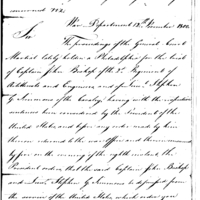 War Department 12th November 1800
Sir
The proceedings of the General Court
Martial lately holden in Philadelphia for the trial
of Captain John Bishop of the 2d Regiment of
Artillerists and Engineers, and of Lieut Stephen
G Simmons of the Cavalry having with the
sentences been considered by the President of the
United States, and
thereon returned to the War Office and
in the evening of the eighth instant, the
President orders, that the said Captain John Bishop
and Lieut Stephen G Simmons be dismissed from
the service of the United States, which order you